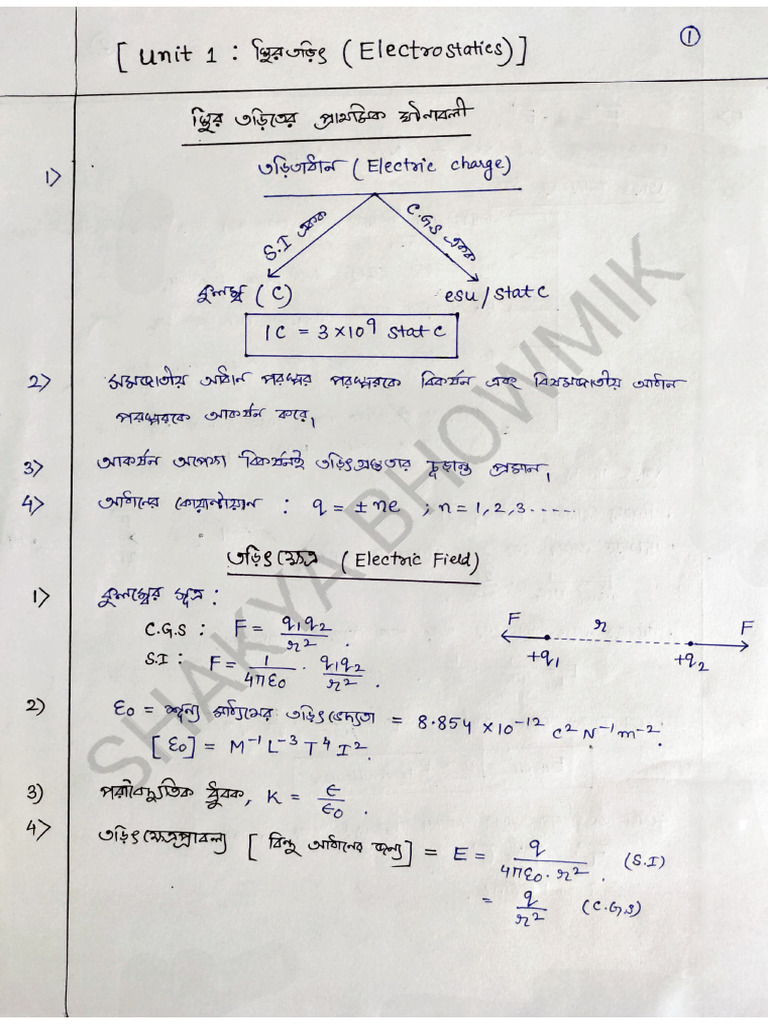 ①
[ Unit 1 : স্থিরতড়িৎ ( Electrostatics) ]
স্থির তড়িতের প্রাথমিক ঘটনাবলী
1> তড়িতাধান ( Electric charge)
S.I একক C.G.S একক
কুলম্ব ( C ) esu / stat C
1 C = 3 × 10⁹ stat C
2> সমজাতীয় আধান পরস্পর পরস্পরকে বিকর্ষন এবং বিষমজাতীয় আধান
পরস্পরকে আকর্ষন করে।
3> আকর্ষন অপেক্ষা বিকর্ষনই তড়িৎগ্রস্ততার চূড়ান্ত প্রমান।
4> আধানের কোয়ান্টায়ান : q = ± ne ; n = 1, 2, 3 .....
তড়িৎক্ষেত্র ( Electric Field)
1> কুলম্বের সূত্র :
C.G.S : F = q₁q₂ / r² .
S.I : F = 1 / 4πε₀ . q₁q₂ / r² .
F r F
+q₁ +q₂
2) ε₀ = শূন্য মাধ্যমের তড়িৎভেদ্যতা = 8.854 × 10⁻¹² C² N⁻¹ m⁻².
[ ε₀ ] = M⁻¹ L⁻³ T⁴ I².
3) পরাবৈদ্যুতিক ধ্রুবক, K = ε / ε₀ .
4> তড়িৎক্ষেত্রপ্রাবল্য [ বিন্দু আধানের জন্য ] = E = q / 4πε₀ . r² . (S.I)
= q / r² (C.G.S)
SHAKYA BHOWMIK